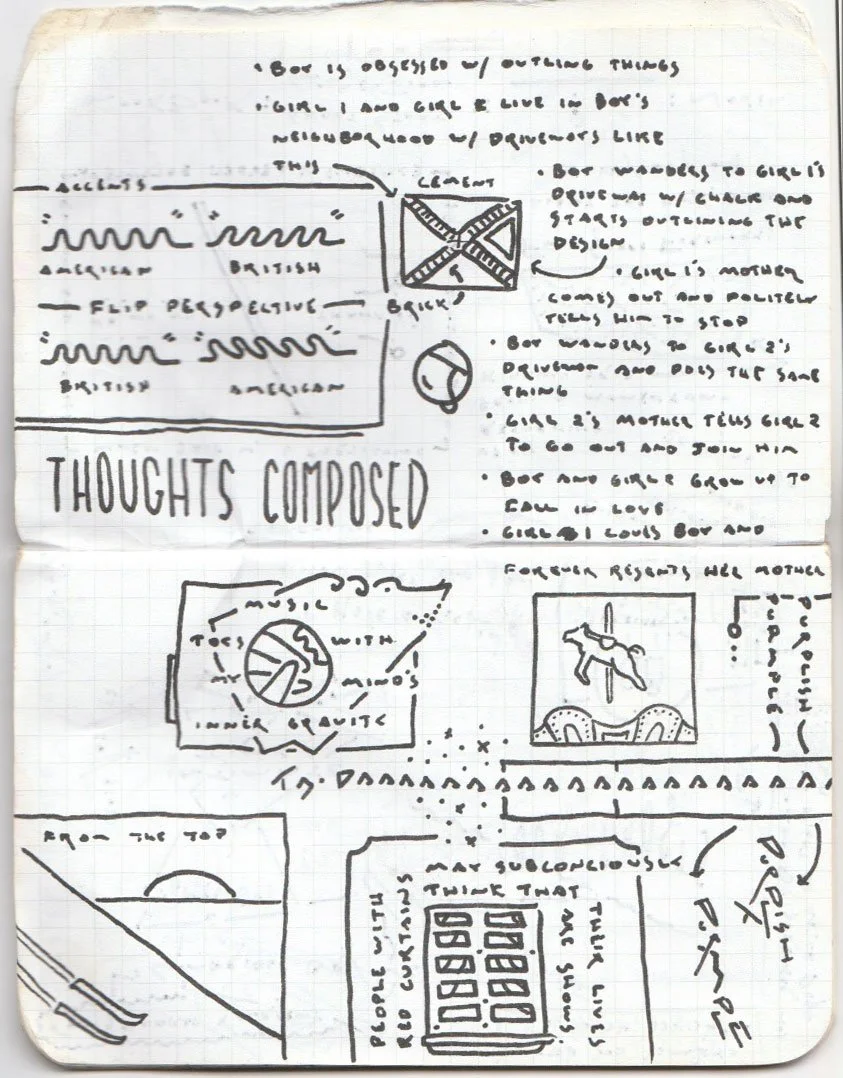 • BOY IS OBSESSED W/ OUTLING THINGS
• GIRL 1 AND GIRL 2 LIVE IN BOY'S
NEIGHBORHOOD W/ DRIVEWAYS LIKE
THIS
CEMENT
BRICK
• BOY WANDERS TO GIRL 1'S
DRIVEWAY W/ CHALK AND
STARTS OUTLINING THE
DESIGN
• GIRL 1'S MOTHER
COMES OUT AND POLITELY
TELLS HIM TO STOP
• BOY WANDERS TO GIRL 2'S
DRIVEWAY AND DOES THE SAME
THING
• GIRL 2'S MOTHER TELLS GIRL 2
TO GO OUT AND JOIN HIM
• BOY AND GIRL 2 GROW UP TO
FALL IN LOVE
• GIRL 1 LOVES BOY AND
FOREVER RESENTS HER MOTHER
ACCENTS
" " " "
AMERICAN BRITISH
FLIP PERSPECTIVE
" " " "
BRITISH AMERICAN
THOUGHTS COMPOSED
MUSIC
TOYS WITH
MY MIND'S
INNER GRAVITY
PURPLISH
PURMPLE
TA-DAAAAAAAAAAAAAAAAAAAAAA
FROM THE TOP
PEOPLE WITH
RED CURTAINS
MAY SUBCONCIOUSLY
THINK THAT
THEIR LIVES
ARE SHOWS.